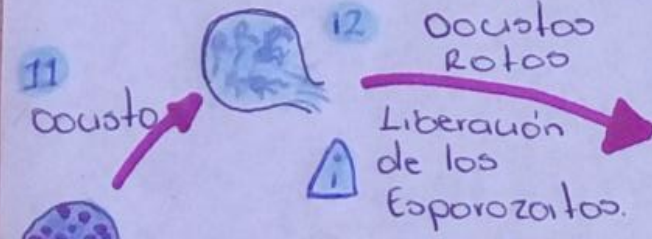 11
Oocisto
12
Oocistos
Rotos
i
Liberación
de los
Esporozoitos.